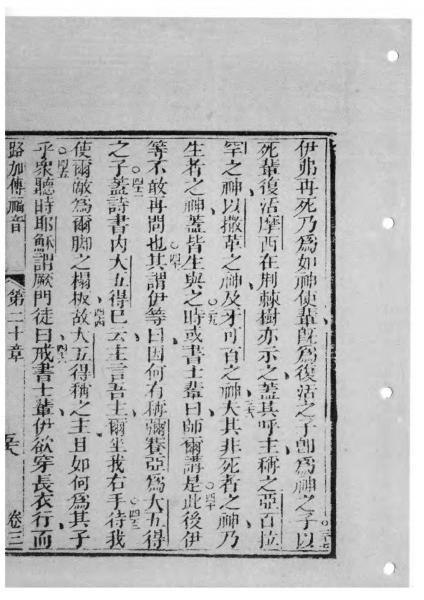 伊弗再死乃爲如神使輩旣爲復活之子卽爲神之子以
死輩復活摩西在荆棘樹亦示之蓋其呼主稱之亞百拉
罕之神以撒革之神及牙可百之神夫其非死者之神乃
生者之神蓋皆生與之時或書士輩曰師爾講是此後伊
等不敢再問也其謂伊等曰因何有稱彌賽亞爲大五得
之子蓋詩書內大五得已云主言吾主爾坐我右手待我
使爾敵爲爾脚之榻板故大五得稱之主且如何爲其子
乎衆聽時耶穌謂厥門徒曰戒書士輩伊欲穿長衣行而
路加傳福音
第二十章
卷三